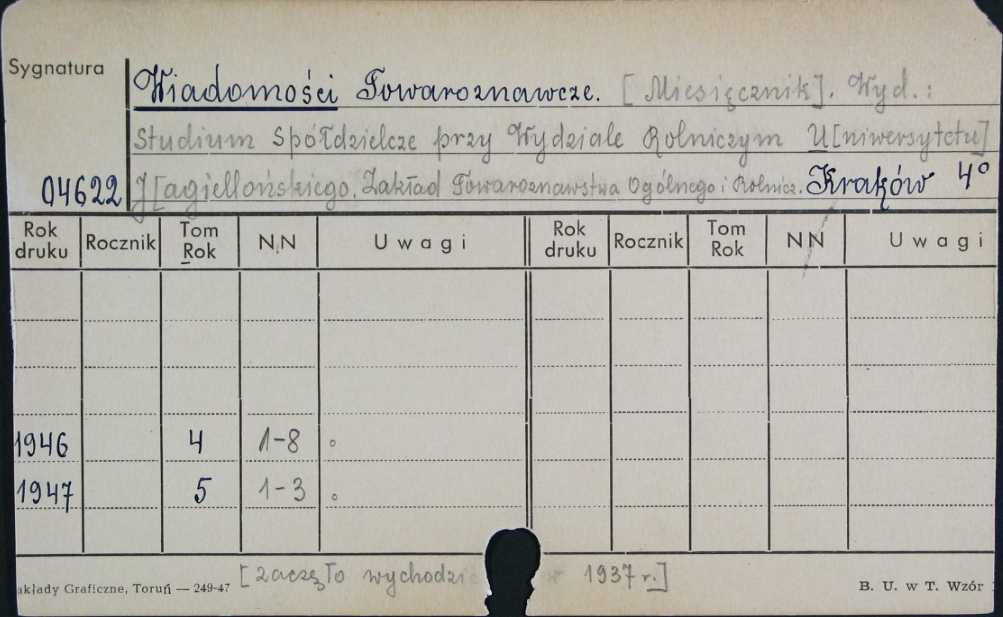 Sygnatura
Wiadomości Towaroznawcze. [Miesięcznik]. Wyd.:
Studium Spółdzielcze przy Wydziale Rolniczym U[niwersytetu]
04622 J[agiellońskiego. Zakład Towaroznawstwa Ogólnego i Rolnicz. Kraków 4°
Rok druku Rocznik Tom Rok N.N Uwagi Rok druku Rocznik Tom Rok NN Uwagi
1946 4 1-8 °
1947 5 1-3 °
[zaczęto wychodzi 1937 r.]
akłady Graficzne, Toruń — 249-47 B. U. w T. Wzór